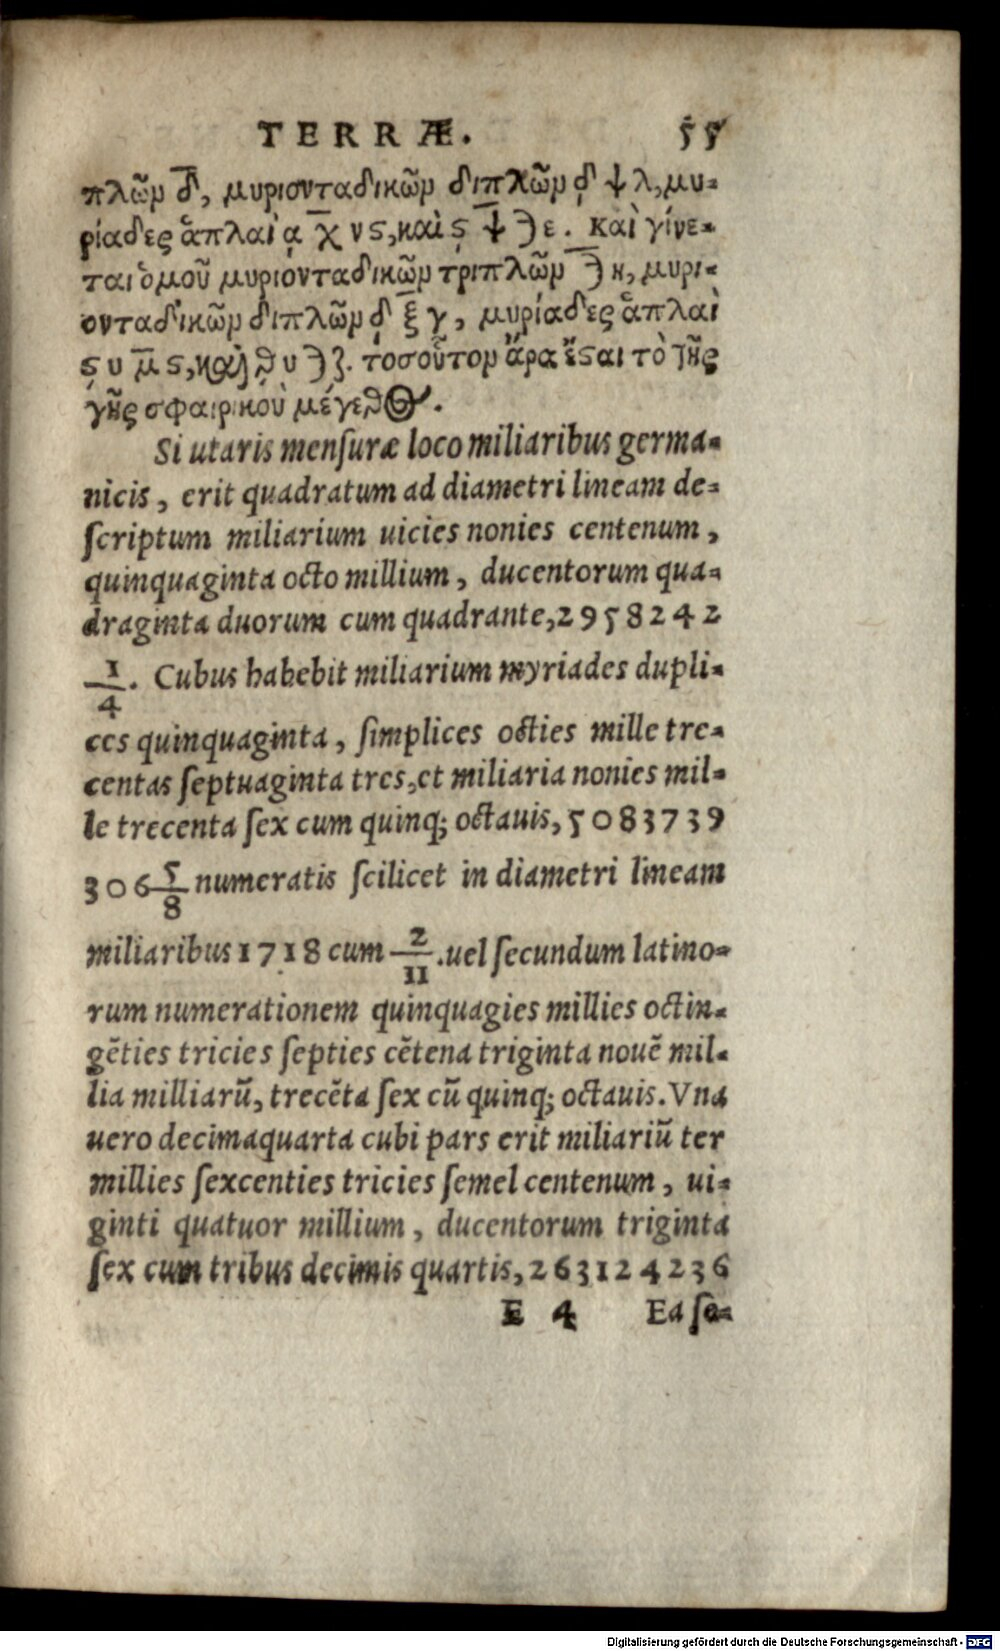 TERRÆ. 55
πλῶν δ̅, μυριονταδικῶν διπλῶν δ ψ λ, μυ-
ριάδες ἁπλαὶ α χ̅ ν ϛ, καὶ ϛ ψ̅ ϡ ε. Καὶ γίνε-
ται ὁμοῦ μυριονταδικῶν τριπλῶν ϡ̅ η, μυρι-
ονταδικῶν διπλῶν δ ξ̅ γ, μυριάδες ἁπλαὶ
ϛ υ μ̅ ϛ, καὶ θ υ ϡ ζ. τοσοῦτον ἄρα ἔϛαι τὸ τῆς
γῆς σφαιρικοὺ μέγεθος.
Si utaris mensuræ loco miliaribus germa-
nicis, erit quadratum ad diametri lineam de-
scriptum miliarium uicies nonies centenum,
quinquaginta octo millium, ducentorum qua-
draginta duorum cum quadrante, 2958242
1/4. Cubus habebit miliarium myriades dupli-
ces quinquaginta, simplices octies mille tre-
centas septuaginta tres, et miliaria nonies mil-
le trecenta sex cum quinq; octauis, 5083739
306 5/8 numeratis scilicet in diametri lineam
miliaribus 1718 cum 2/11. uel secundum latino-
rum numerationem quinquagies millies octin-
gẽties tricies septies cẽtena triginta nouẽ mil-
lia milliarũ, trecẽta sex cũ quinq; octauis. Vna
uero decimaquarta cubi pars erit miliariũ ter
millies sexcenties tricies semel centenum, ui-
ginti quatuor millium, ducentorum triginta
sex cum tribus decimis quartis, 263124236
E 4 Ea se-
Digitalisierung gefördert durch die Deutsche Forschungsgemeinschaft - DFG